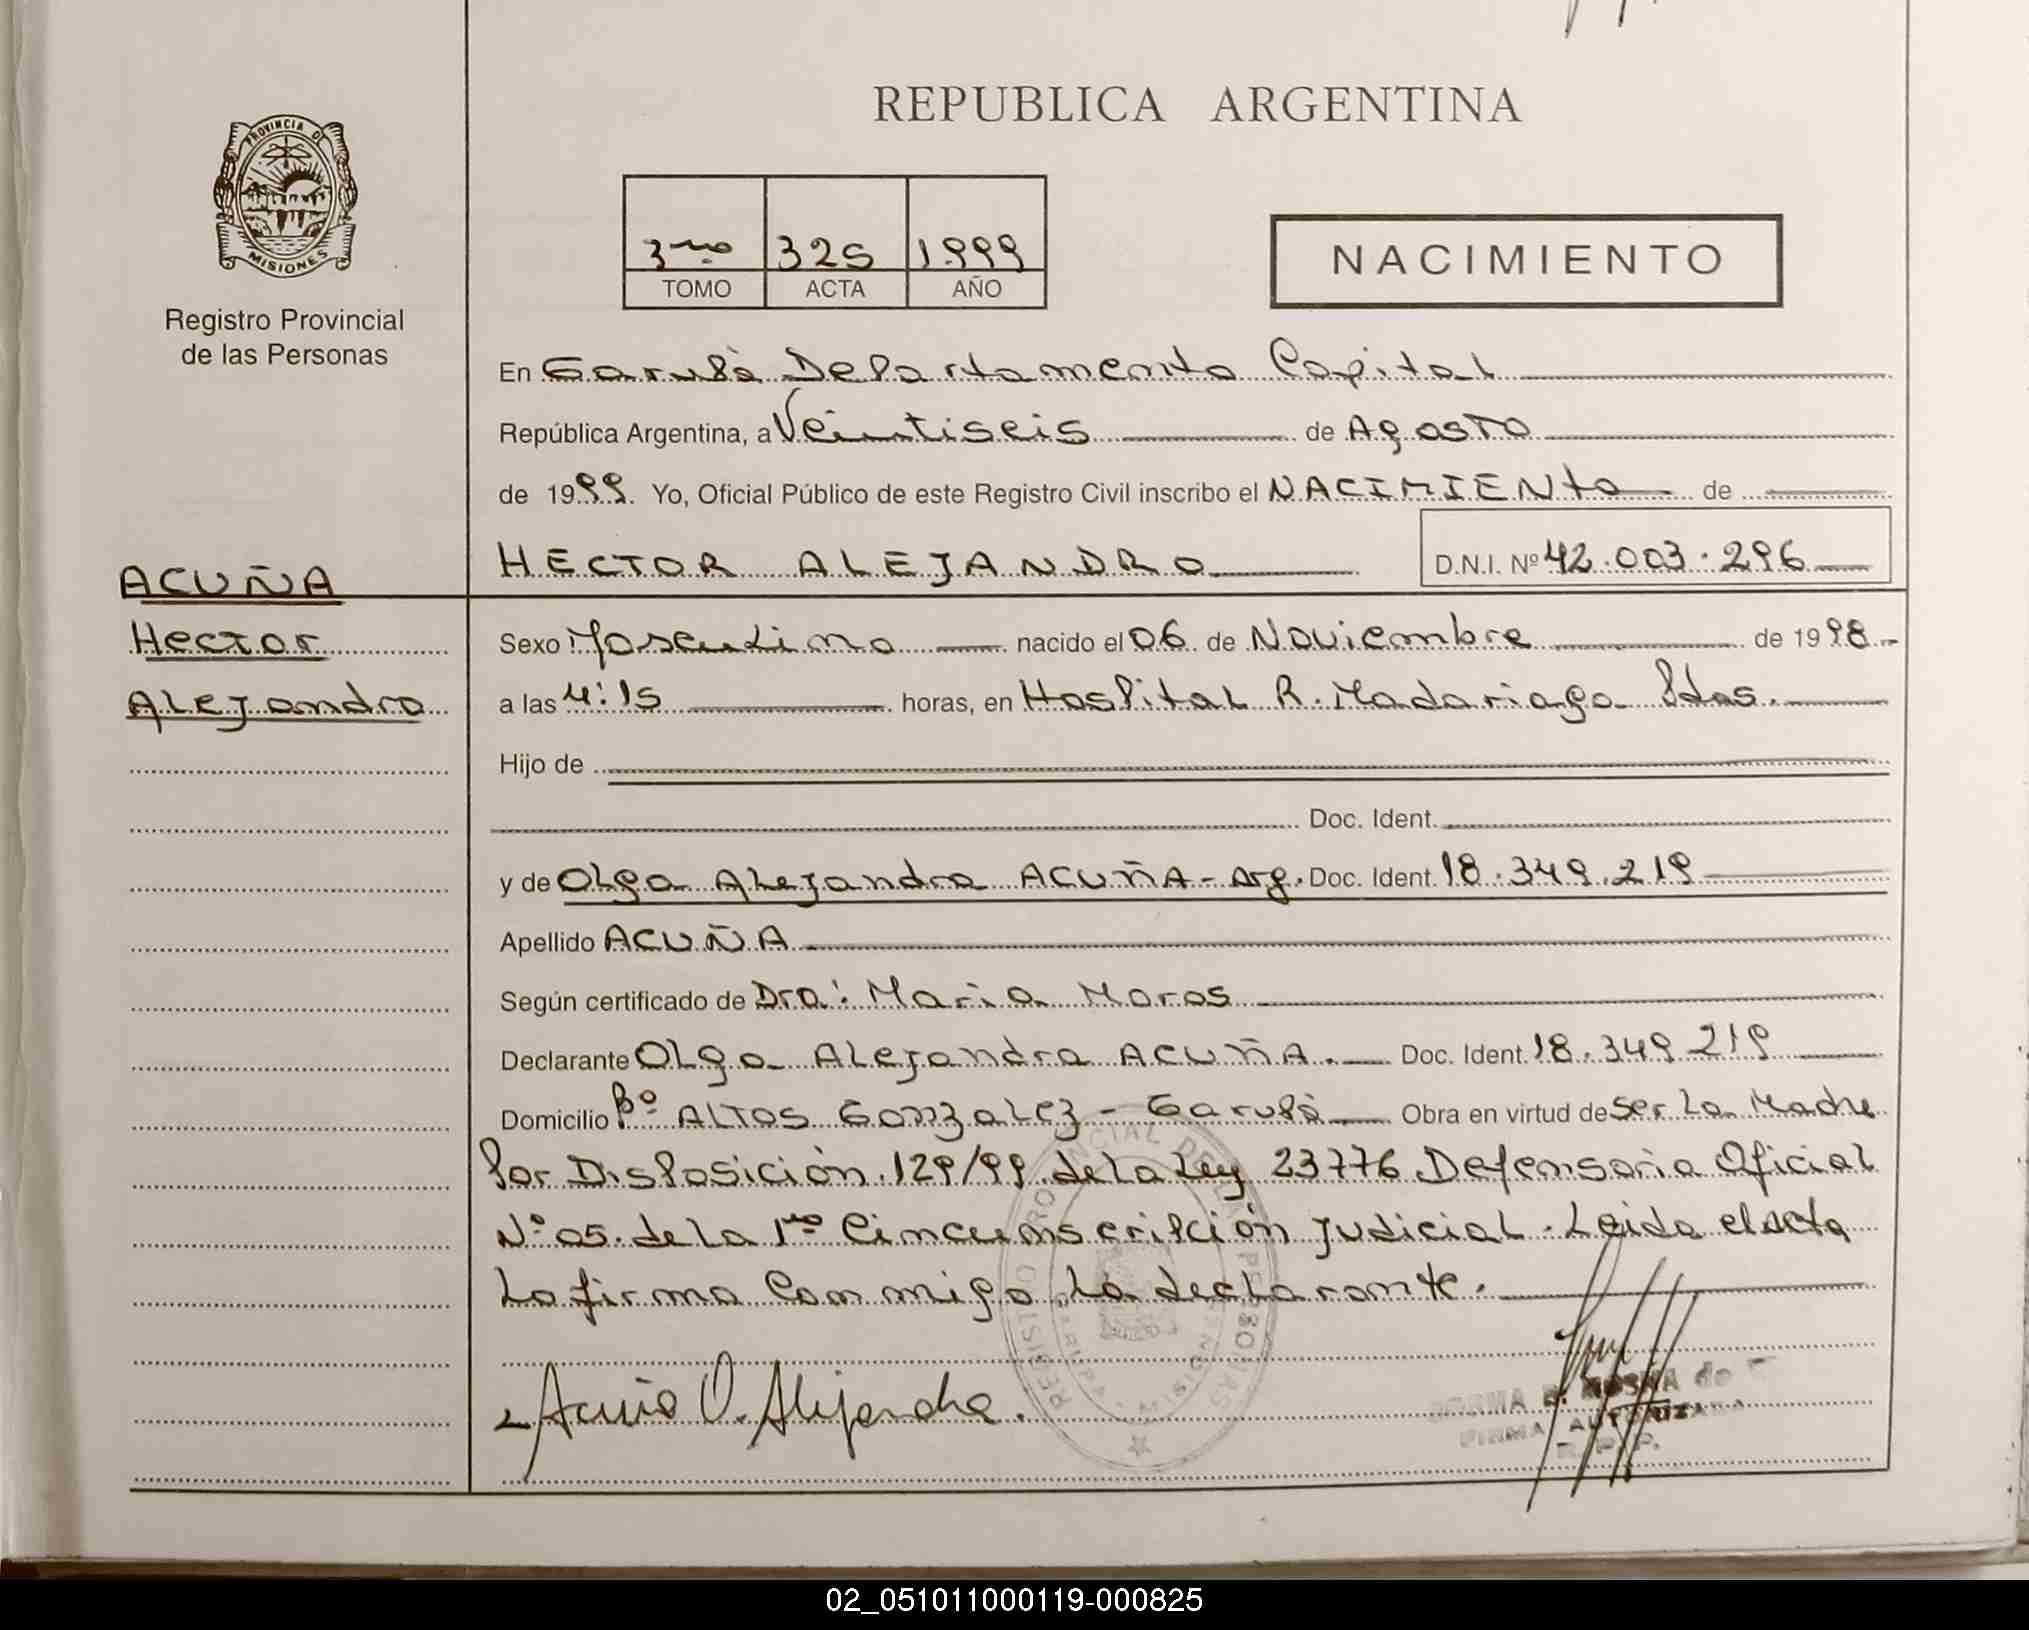 REPUBLICA ARGENTINA
PROVINCIA DE
MISIONES
Registro Provincial
de las Personas
3ro 325 1999
TOMO ACTA AÑO
NACIMIENTO
En Garupá Departamento Capital
República Argentina, a Veintiseis de Agosto
de 1999. Yo, Oficial Público de este Registro Civil inscribo el NACIMIENto de
HECTOR ALEJANDRO D.N.I. Nº 42.003.296
ACUÑA
Hector
Alejandro
Sexo Masculino nacido el 06 de Noviembre de 1998.-
a las 4:15 horas, en Hospital R. Madariaga Pdas.
Hijo de
Doc. Ident.
y de Olga Alejandra ACUÑA - Arg. Doc. Ident. 18.349.219
Apellido ACUÑA
Según certificado de Dra: Maria Moros
Declarante Olga Alejandra ACUÑA. Doc. Ident. 18.349 219
Domicilio Bº ALTOS Gonzalez - Garupá Obra en virtud de Ser La Madre
Por Disposición 129/99 de la Ley 23776 Defensoria Oficial
Nº 05. de la 1ra Cincunscripción Judicial. Leida el acta
La firma Conmigo La declarante.
Acuña O. Alejandra.
REGISTRO PROVINCIAL DE LAS PERSONAS
FIRMA AUTORIZADA
R.P.P.
02_051011000119-000825